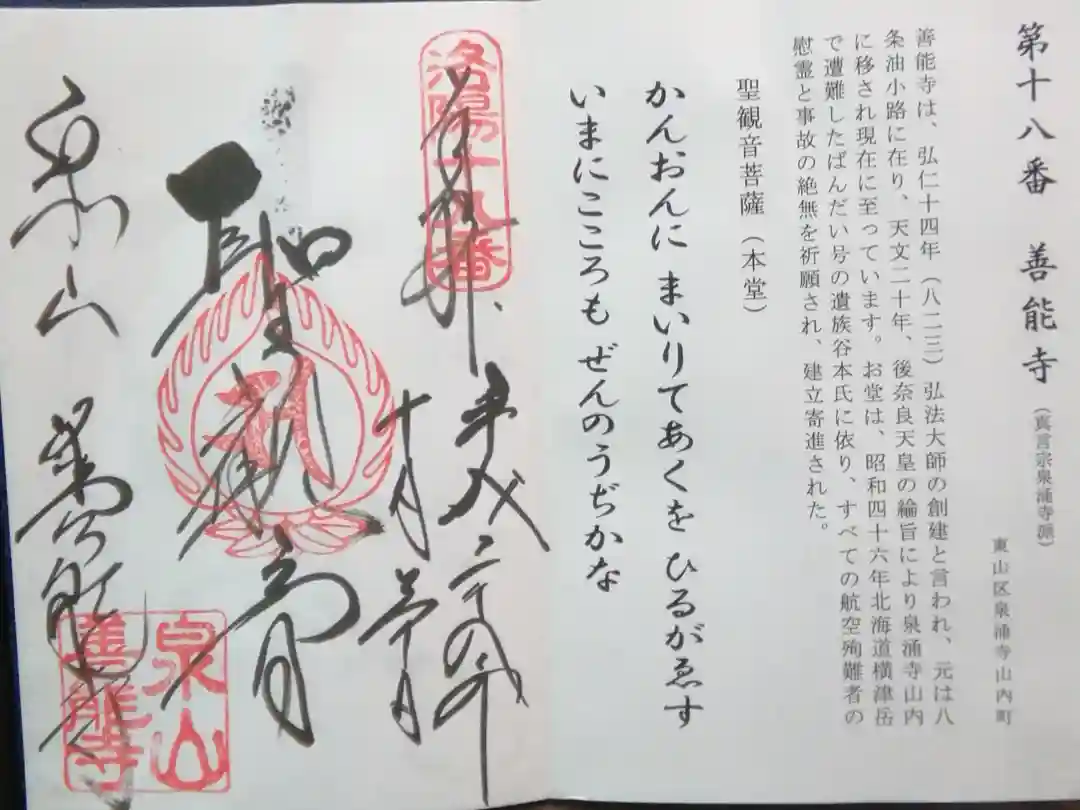 第十八番　善能寺（真言宗泉涌寺派）
東山区泉涌寺山内町
善能寺は、弘仁十四年（八二三）弘法大師の創建と言われ、元は八
条油小路に在り、天文二十年、後奈良天皇の綸旨により泉涌寺山内
に移され現在に至っています。お堂は、昭和四十六年北海道横津岳
で遭難したばんだい号の遺族谷本氏に依り、すべての航空殉難者の
慰霊と事故の絶無を祈願され、建立寄進された。
聖観音菩薩（本堂）
かんおんに まいりてあくを ひるがゑす
いまにこころも ぜんのうぢかな
奉拝
平成二十四年
聖観音
泉山 善能寺
泉山
善能寺